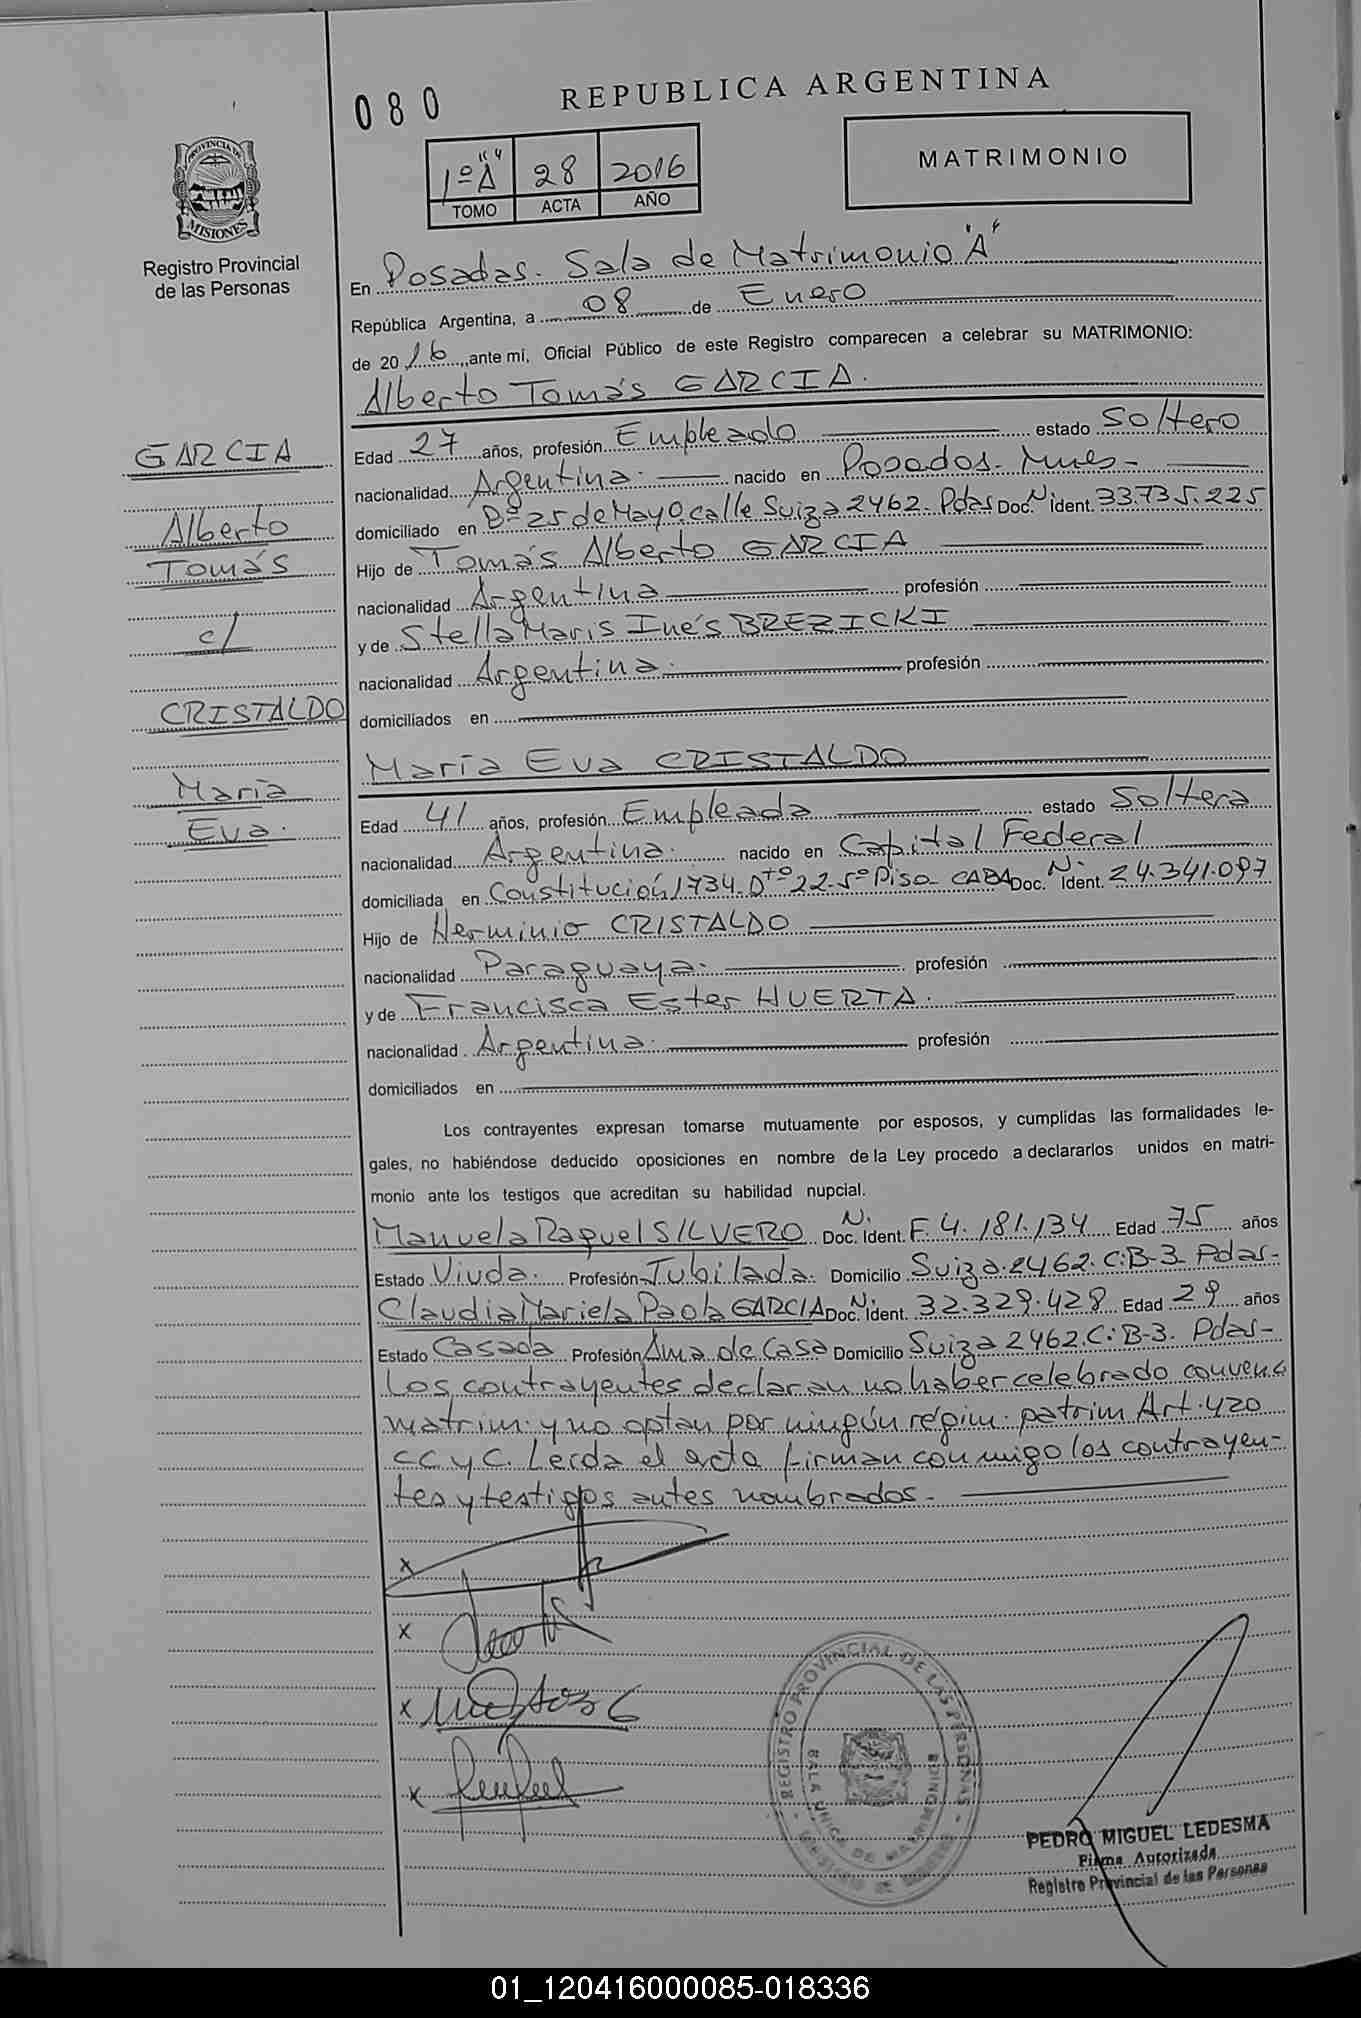 080
REPUBLICA ARGENTINA
1º "A" 28 2016
TOMO ACTA AÑO
MATRIMONIO
PROVINCIA DE MISIONES
Registro Provincial
de las Personas
En Posadas. Sala de Matrimonio "A"
República Argentina, a 08 de Enero
de 2016, ante mí, Oficial Público de este Registro comparecen a celebrar su MATRIMONIO:
Alberto Tomás GARCIA.
GARCIA
Alberto
Tomás
c/
CRISTALDO
María
Eva.
Edad 27 años, profesión Empleado estado Soltero
nacionalidad Argentina. nacido en Posadas. Mnes-
domiciliado en Bº 25 de Mayo. calle Suiza 2462. Pdas Doc. N. Ident. 33.735.225
Hijo de Tomás Alberto GARCIA
nacionalidad Argentina profesión
y de Stella Maris Inés BREZICKI
nacionalidad Argentina. profesión
domiciliados en
María Eva CRISTALDO
Edad 41 años, profesión Empleada estado Soltera
nacionalidad Argentina. nacido en Capital Federal
domiciliada en Constitución 1734. Dto 22-5º Piso- CABA Doc. N. Ident. 24.341.097
Hijo de Herminio CRISTALDO
nacionalidad Paraguaya. profesión
y de Francisca Ester HUERTA.
nacionalidad Argentina. profesión
domiciliados en
Los contrayentes expresan tomarse mutuamente por esposos, y cumplidas las formalidades le-
gales, no habiéndose deducido oposiciones en nombre de la Ley procedo a declararlos unidos en matri-
monio ante los testigos que acreditan su habilidad nupcial.
Manuela Raquel SILVERO Doc. N. Ident. F. 4.181.134 Edad 75 años
Estado Viuda. Profesión Jubilada. Domicilio Suiza.2462.C:B-3 Pdas-
Claudia Mariela Paola GARCIA Doc. N. Ident. 32.329.428 Edad 29 años
Estado Casada Profesión Ama de Casa Domicilio Suiza 2462.C:B-3. Pdas-
Los contrayentes declaran no haber celebrado convenc
matrim. y no optan por ningún régim. patrim Art. 420
CC y C. Leída el acta firman conmigo los contrayen-
tes y testigos antes nombrados.-
x
x
x
x
REGISTRO PROVINCIAL DE LAS PERSONAS
SALA UNICA DE MATRIMONIOS
PEDRO MIGUEL LEDESMA
Firma Autorizada
Registro Provincial de las Personas
01_120416000085-018336